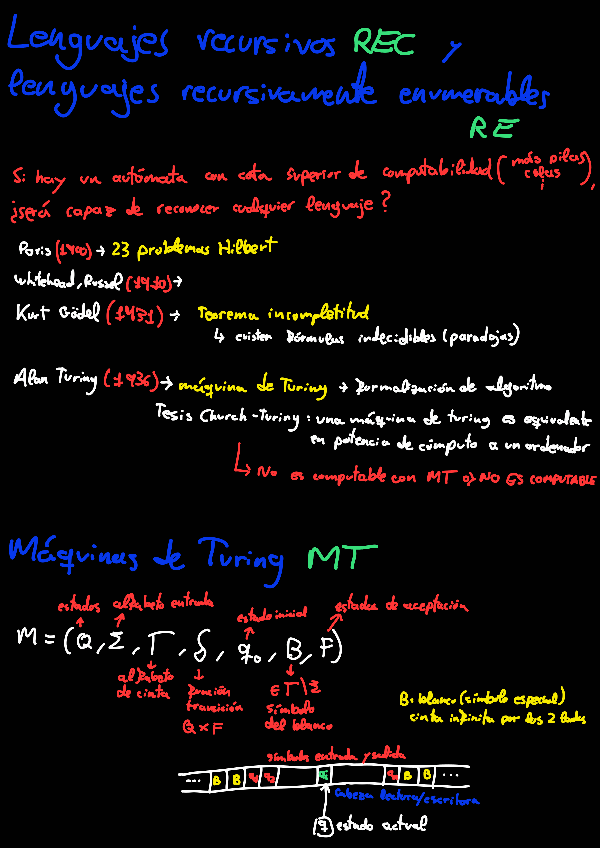 Lenguajes recursivos REC y
lenguajes recursivamente enumerables
RE
Si hay un autómata con cota superior de computabilidad (más pilas, colas, ...),
¿será capaz de reconocer cualquier lenguaje?
Paris (1900) → 23 problemas Hilbert
Whitehead, Russel (1910) →
Kurt Gödel (1931) → Teorema incompletitud
↳ existen fórmulas indecidibles (paradojas)
Alan Turing (1936) → máquina de Turing → Formalización de algoritmo
Tesis Church-Turing: una máquina de turing es equivalente
en potencia de cómputo a un ordenador
↳ No es computable con MT ⇒ NO ES COMPUTABLE
Máquinas de Turing MT
estados alfabeto entrada estado inicial estados de aceptación
M = (Q, Σ, Γ, δ, q₀, B, F)
alfabeto de cinta
función transición
Q × F
∈ Γ \ Σ
símbolo del blanco
B: blanco (símbolo especial)
cinta infinita por los 2 lados
símbolos entrada y salida
... B B B B ...
cabeza lectora/escritora
q estado actual